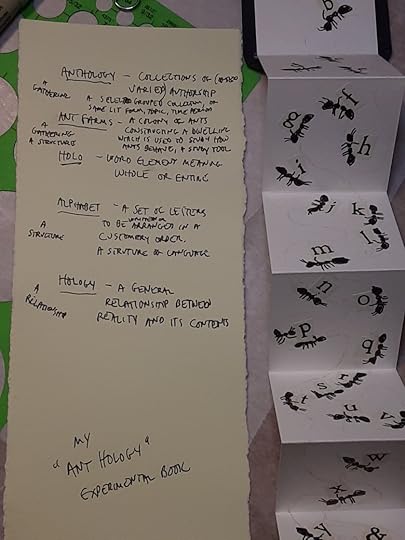 ANTHOLOGY - COLLECTIONS OF
VARIED AUTHORSHIP
A GATHERING
A SELECT GROUPED COLLECTION, OR
SAME LIT FORM, TOPIC, TIME PERIOD
ANT FARMS - A COLONY OF ANTS
A GATHERING
A STRUCTURE
CONSTRUCTING A DWELLING
WHICH IS USED TO STUDY HOW
ANTS BEHAVE, A STUDY TOOL
HOLO - WORD ELEMENT MEANING
WHOLE OR ENTIRE
ALPHABET - A SET OF LETTERS
A STRUCTURE
TO BE ARRANGED IN A
CUSTOMERY ORDER.
A STRUTURE OF LANGUAGE
HOLOGY - A GENERAL
A RELATIONSHIP
RELATIONSHIP BETWEEN
REALITY AND ITS CONTENTS
MY
"ANT HOLOGY"
EXPERIMENTAL BOOK
b
f
g
h
i
j k
l
m
n
o
p
q
r
s
t
u
v
w
x
y &